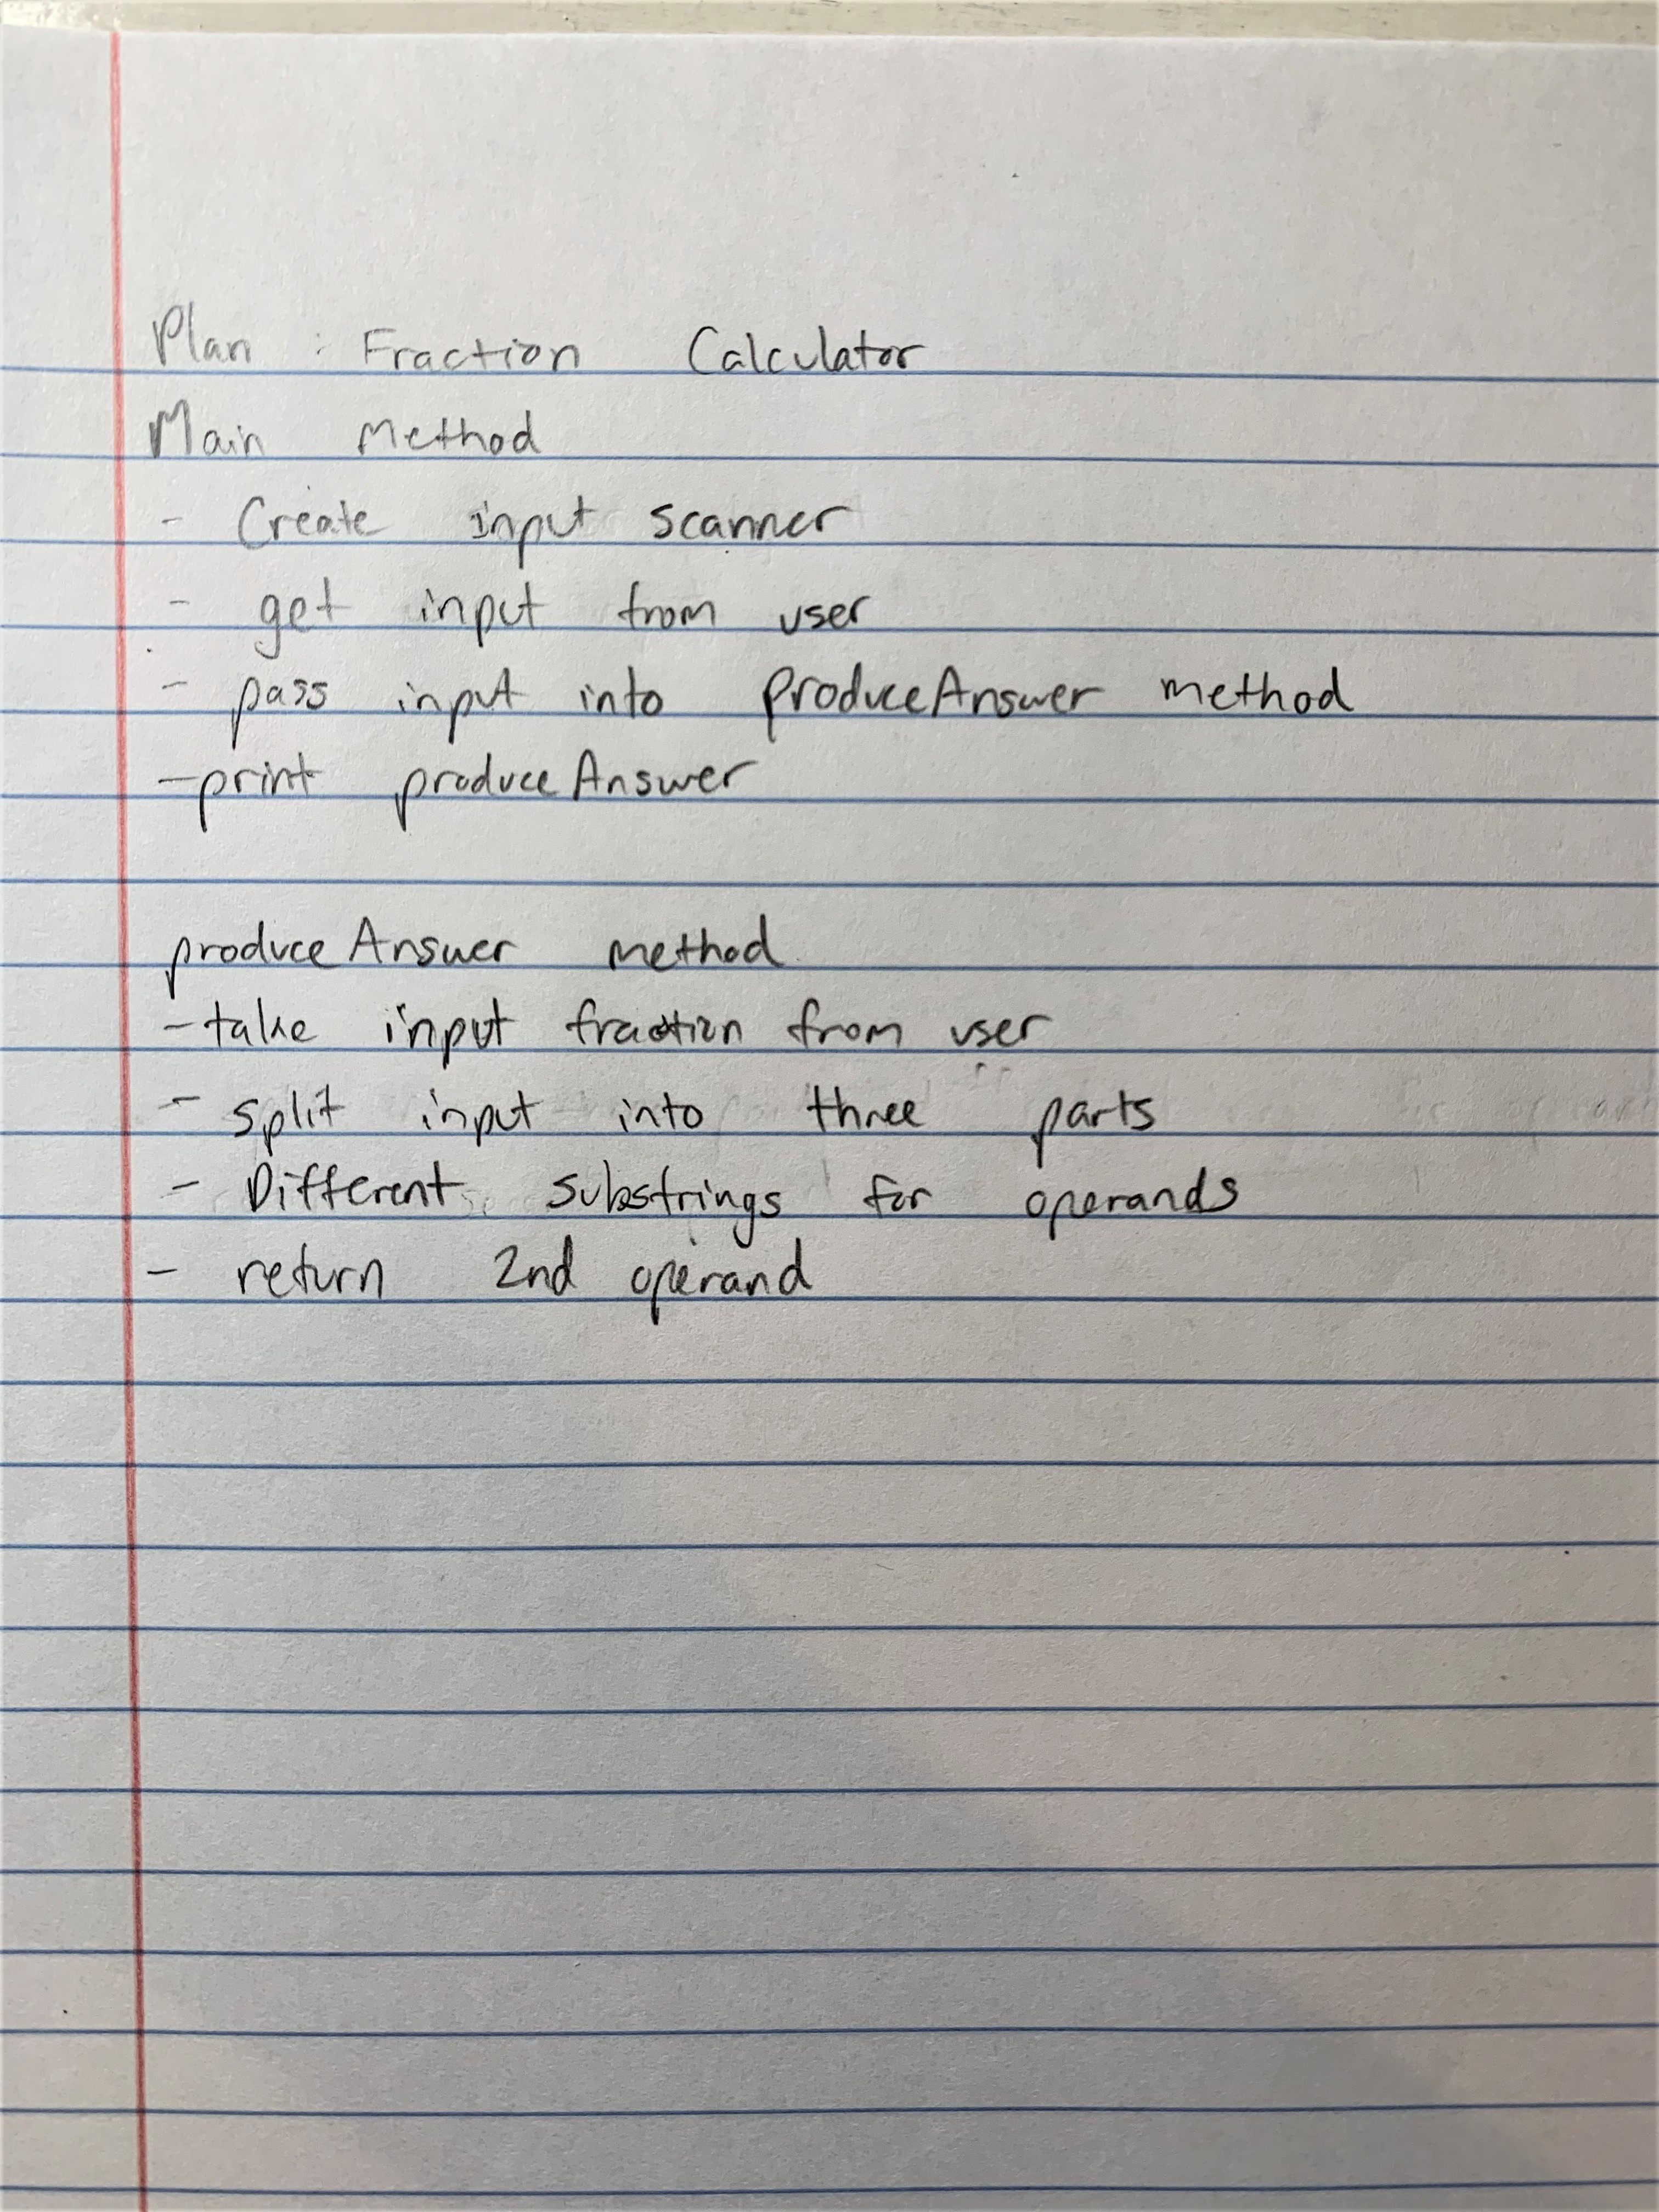 Plan : Fraction Calculator
Main Method
- Create input scanner
- get input from user
- pass input into produceAnswer method
- print produceAnswer
produceAnswer method
- take input fraction from user
- split input into three parts
- Different substrings for operands
- return 2nd operand